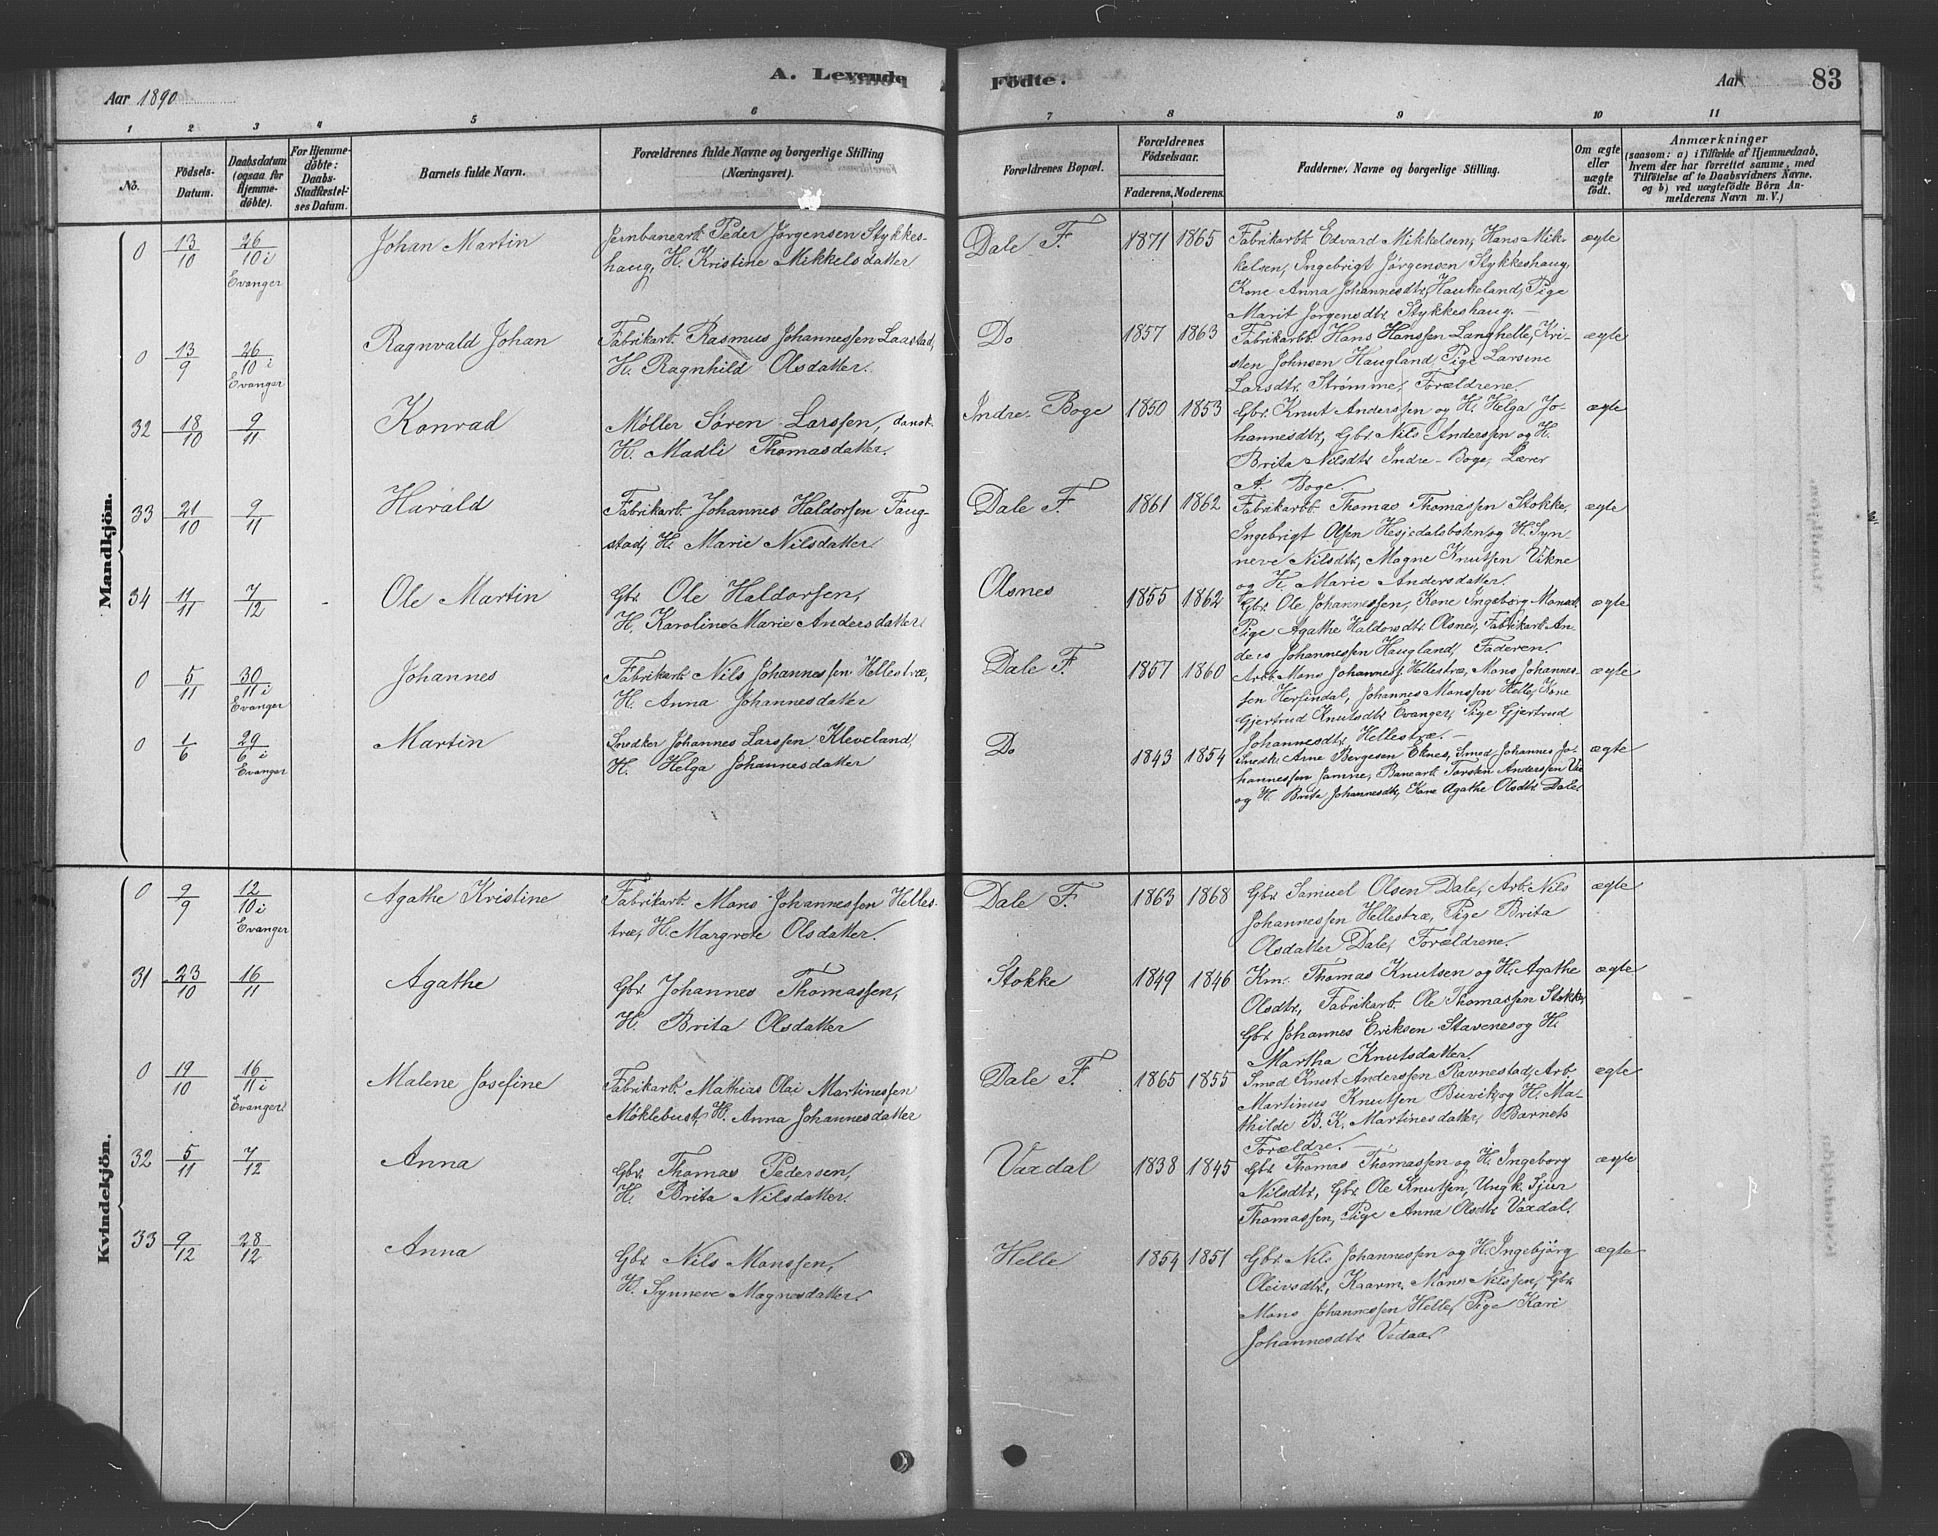 A. Levende Födte.
Aar 1890
Aar
83
1 2 3 4 5 6 7 8 9 10 11
No.
Födsels-Datum.
Daabsdatum (ogsaa for Hjemmedöbte).
For Hjemmedöbte: Daabs-Stadfæstelses Datum.
Barnets fulde Navn.
Forældrenes fulde Navne og borgerlige Stilling (Næringsvei).
Forældrenes Bopæl.
Forældrenes Födselsaar.
Faderens. Moderens.
Faddernes Navne og borgerlige Stilling.
Om ægte eller uægte födt.
Anmærkninger
(saasom: a) i Tilfælde af Hjemmedaab,
hvem der har forrettet samme, med
Tilföielse af to Daabsvidners Navne.
og b) ved uægtefödte Börn An-
melderens Navn m. V.)
Mandkjön.
0 13/10 26/10 i Evanger Johan Martin
Jernbanearb. Peder Jørgensen Stykkes-
haug, H. Kristine Mikkelsdatter
Dale F. 1871 1865
Fabrikarbt. Edvard Mikkelsen, Hans Mik-
kelsen, Ingebrigt Jørgensen Stykkeshaug,
Kone Anna Johannesdtr. Haukeland, Pige
Marit Jørgensdtr. Stykkeshaug. —
ægte
0 13/9 26/10 i Evanger Ragnvald Johan
Fabrikarb. Rasmus Johannessen Laastad,
H. Ragnhild Olsdatter.
Do 1857 1863
Fabrikarbt. Hans Hanssen Langhelle, Kri-
sten Johnsen Haugland, Pige Larsine
Larsdtr. Strømme, Forældrene.
ægte
32 18/10 9/11 Konrad
Møller Søren Larssen, dansk
H. Madli Thomasdatter.
Indre-Boge 1850 1853
Gbr. Knut Anderssen og H. Helga Jo-
hannesdtr, Gbr. Nils Anderssen og H.
Brita Nilsdtr. Indre-Boge, Lærer
A. Boge
ægte
33 21/10 9/11 Harald
Fabrikarb. Johannes Haldorsen Faug-
stad, H. Marie Nilsdatter.
Dale F. 1861 1862
Fabrikarbt. Thomas Thomassen Stokke,
Ingebrigt Olsen Hesjedalsboten og H. Syn-
neve Nilsdtr, Magne Knutsen Vikne
og H. Marie Andersdatter.
ægte
34 11/11 7/12 Ole Martin
Gbr. Ole Haldorsen,
H. Karoline Marie Andersdatter.
Olsnes 1855 1862
Gbr. Ole Johannessen, Kone Ingeborg Monsdt,
Pige Agathe Haldorsdtr. Olsnes, Fabrikarb. An-
ders Johannessen Haugland, Faderen.
ægte
0 5/11 30/11 i Evanger Johannes
Fabrikarb. Nils Johannessen Hellestræ,
H. Anna Johannesdatter
Dale F. 1857 1860
Arb. Mons Johanness. Hellestræ, Mons Johannes-
sen Herfindal, Johannes Monssen Helle, Kone
Gjertrud Knutsdtr. Evanger, Pige Gjertrud
Johannesdtr. Hellestræ. —
ægte
0 1/6 29/6 i Evanger Martin
Snedker Johannes Larssen Kleveland,
H. Helga Johannesdatter
Do 1843 1854
Snedk. Arne Bergesen Eknes, Smed Johannes Jo-
hannessen Jamne, Banearb. Torsten Anderssen
og H. Brita Johannesdtr, Kone Agathe Olsdtr. Dale.
ægte
Kvindekjön.
0 9/9 12/10 i Evanger Agathe Kristine
Fabrikarb. Mons Johannessen Helles-
træ, H. Margrete Olsdatter.
Dale F. 1863 1868
Gbr. Samuel Olsen Dale, Arb. Nils
Johannessen Hellestræ, Pige Brita
Olsdatter Dale, Forældrene.
ægte
31 23/10 16/11 Agathe
Gbr. Johannes Thomassen,
H. Brita Olsdatter
Stokke 1849 1846
Km. Thomas Knutsen og H. Agathe
Olsdtr, Fabrikarb. Ole Thomassen Stokke,
Gbr. Johannes Eriksen Stavenes og H.
Martha Knutsdatter.
ægte
0 19/10 16/11 i Evanger Malene Josefine
Fabrikarb. Mathias Olai Martinessen
Møklebust, H. Anna Johannesdatter
Dale F. 1865 1855
Smed Knut Anderssen Ravnestad, Arb.
Martinus Knutsen Buvik og H. Ma-
thilde B. K. Martinesdatter, Barnets
Forældre. —
ægte
32 5/11 7/12 Anna
Gbr. Thomas Pedersen,
H. Brita Nilsdatter.
Vaxdal 1838 1845
Gbr. Thomas Thomassen og H. Ingeborg
Nilsdtr, Gbr. Ole Knutsen, Ungk. Sjur
Thomassen, Pige Anna Olsdtr. Vaxdal.
ægte
33 9/12 28/12 Anna
Gbr. Nils Monssen,
H. Synneve Magnesdatter.
Helle 1854 1851
Gbr. Nils Johannessen og H. Ingebjörg
Oleivsdtr, Kaarm. Mons Nilssen, Gbr.
Mons Johannessen Helle, Pige Kari
Johannesdtr. Vedaa.
ægte